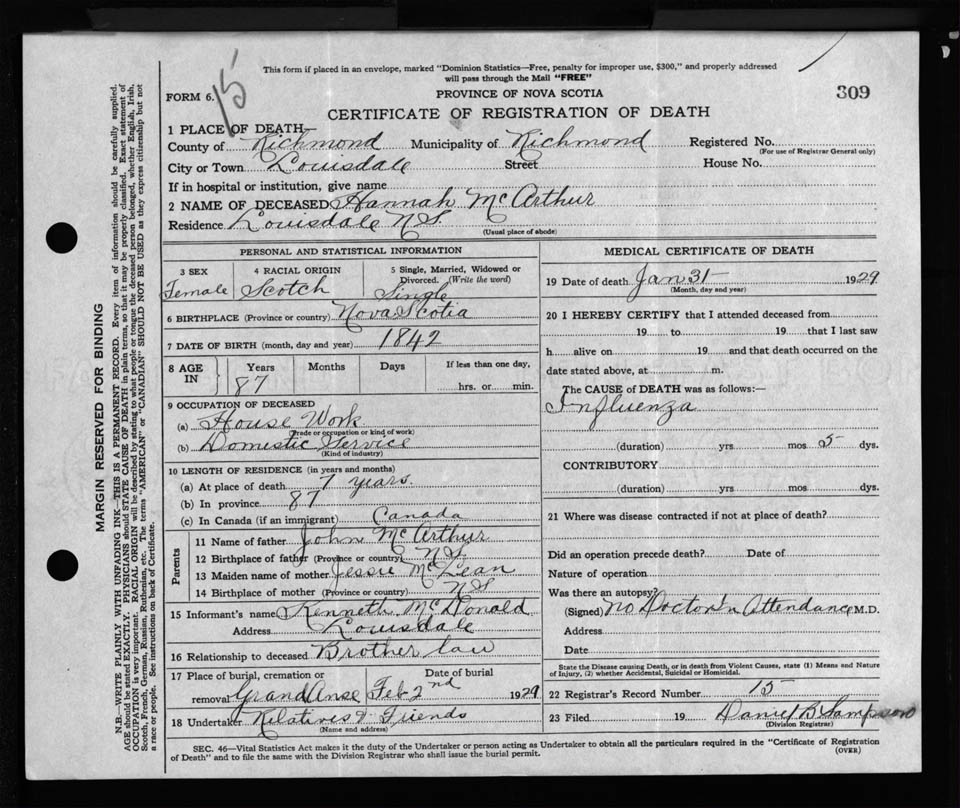 This form if placed in an envelope, marked "Dominion Statistics—Free, penalty for improper use, $300," and properly addressed
will pass through the Mail "FREE"
FORM 6.
15
PROVINCE OF NOVA SCOTIA
309
CERTIFICATE OF REGISTRATION OF DEATH
1 PLACE OF DEATH
County of Richmond Municipality of Richmond Registered No.
(For use of Registrar General only)
City or Town Louisdale Street House No.
If in hospital or institution, give name
2 NAME OF DECEASED Hannah McArthur
Residence Louisdale N.S.
(Usual place of abode)
PERSONAL AND STATISTICAL INFORMATION
3 SEX 4 RACIAL ORIGIN 5 Single, Married, Widowed or
Divorced. (Write the word)
Female Scotch Single
6 BIRTHPLACE (Province or country) Nova Scotia
7 DATE OF BIRTH (month, day and year) 1842
8 AGE IN Years Months Days If less than one day,
87 hrs. or min.
9 OCCUPATION OF DECEASED
(a) House Work
(Trade or occupation or kind of work)
(b) Domestic Service
(Kind of industry)
10 LENGTH OF RESIDENCE (in years and months)
(a) At place of death 7 years.
(b) In province 87
(c) In Canada (if an immigrant) Canada
Parents
11 Name of father John McArthur
12 Birthplace of father (Province or country) N.S.
13 Maiden name of mother Jessie McLean
14 Birthplace of mother (Province or country) N.S.
15 Informant's name Kenneth McDonald
Address Louisdale
16 Relationship to deceased Brother law
17 Place of burial, cremation or Date of burial
removal Grand Anse Feb 2nd 1929
18 Undertaker Relatives & Friends
(Name and address)
MEDICAL CERTIFICATE OF DEATH
19 Date of death Jan 31 1929
(Month, day and year)
20 I HEREBY CERTIFY that I attended deceased from
19 to 19 that I last saw
h alive on 19 and that death occurred on the
date stated above, at m.
The CAUSE of DEATH was as follows:—
Influenza
(duration) yrs mos 5 dys.
CONTRIBUTORY
(duration) yrs mos dys.
21 Where was disease contracted if not at place of death?
Did an operation precede death? Date of
Nature of operation
Was there an autopsy?
(Signed) No Doctor in Attendance M.D.
Address
Date
State the Disease causing Death, or in death from Violent Causes, state (1) Means and Nature
of Injury, (2) whether Accidental, Suicidal or Homicidal.
22 Registrar's Record Number 15
23 Filed 19 Daniel B Sampson
(Division Registrar)
SEC. 46—Vital Statistics Act makes it the duty of the Undertaker or person acting as Undertaker to obtain all the particulars required in the "Certificate of Registration
of Death" and to file the same with the Division Registrar who shall issue the burial permit. (OVER)
MARGIN RESERVED FOR BINDING
N.B.—WRITE PLAINLY WITH UNFADING INK—THIS IS A PERMANENT RECORD. Every item of information should be carefully supplied.
AGE should be stated EXACTLY. PHYSICIANS should STATE CAUSE OF DEATH in plain terms, so that it may be properly classified. Exact statement of
OCCUPATION is very important. RACIAL ORIGIN will be described by stating to what people or tongue the deceased person belonged, whether English, Irish,
Scotch, French, German, Russian, Ruthenian, etc. The terms "AMERICAN" or "CANADIAN" SHOULD NOT BE USED as they express citizenship but not
a race or people. See instructions on back of Certificate.